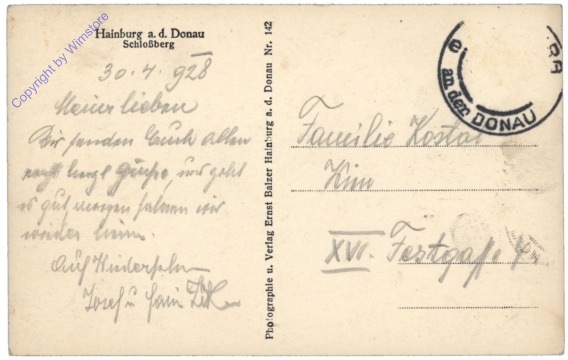 Hainburg a. d. Donau
Schloßberg
30.4.928
Meine lieben
Wir senden Euch allen
recht herzl Grüße, und geht
es gut morgen fahren wir
wieder heim.
Auf Wiedersehn
Josef u
Photographie u. Verlag Ernst Balzer Hainburg a. d. Donau Nr. 142
an der DONAU
Familie
Wien
XVI. Festgasse
Copyright by Wimstore